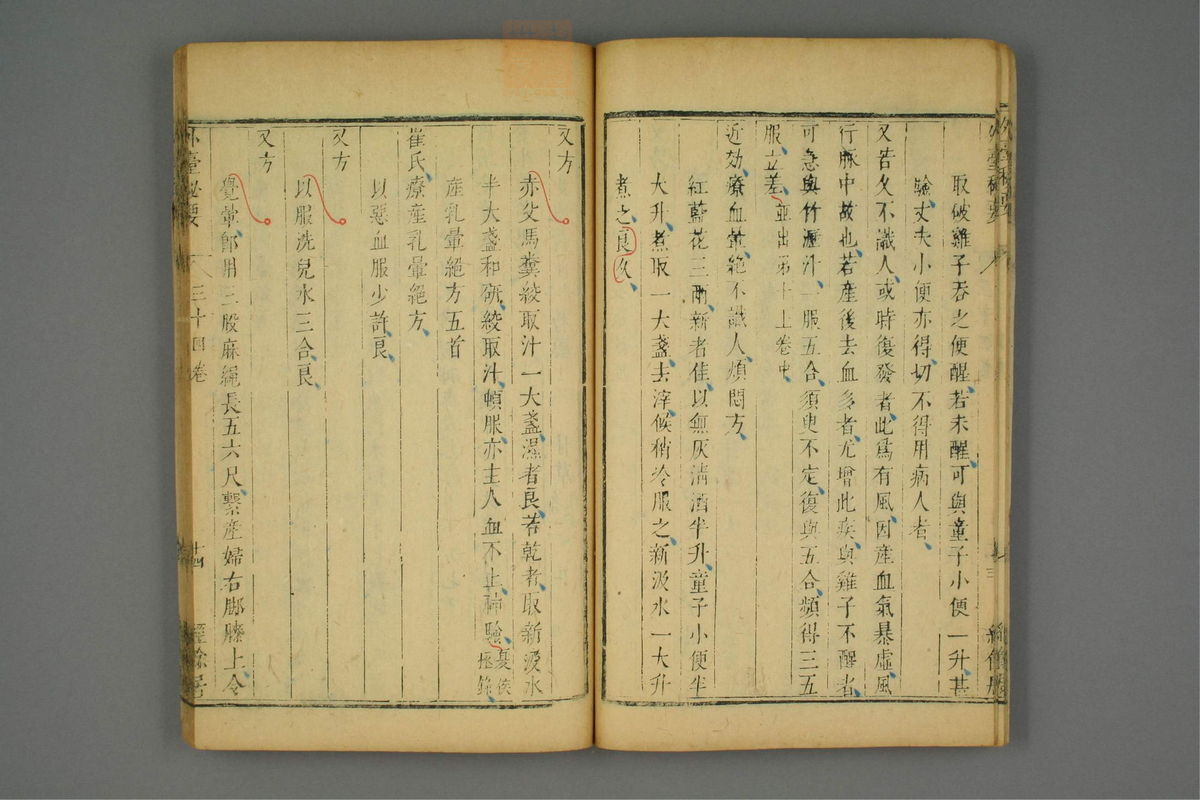 取破雞子吞之便醒若未醒可與童子小便一升甚
驗丈夫小便亦得切不得用病人者
又若久不識人或時復發者此為有風因產血氣暴虛風
行脈中故也若產後去血多者尤增此疾與雞子不醒者
可急與竹瀝汁一服五合須臾不定復與五合頻得三五
服立差並出第十上卷中
近効療血暈絕不識人煩悶方
紅藍花三兩新者佳以無灰清酒半升童子小便半
大升煮取一大盞去滓候稍冷服之新汲水一大升
煮之良久
又方
赤父馬糞絞取汁一大盞濕者良若乾者取新汲水
半大盞和研絞取汁頓服亦主人血不止神驗
產乳暈絕方五首
崔氏療產乳暈絕方
以惡血服少許良
又方
以服洗兒水三合良
又方
覺暈即用三股麻繩長五六尺繫產婦右脚膝上令
外臺秘要 三十四卷 十四 經餘居